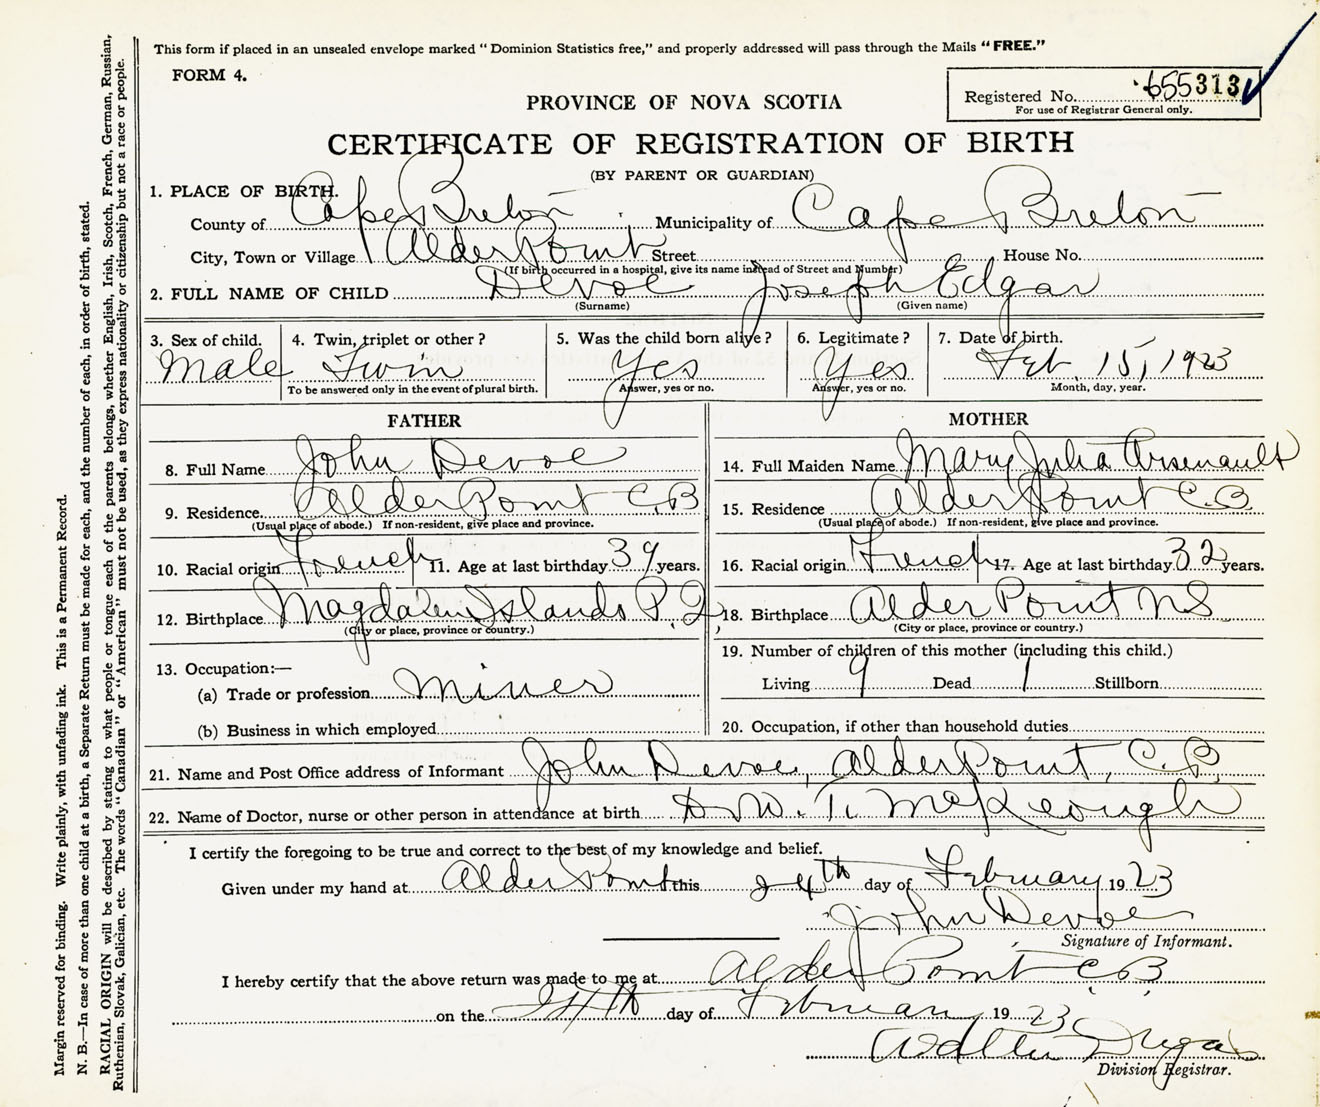 This form if placed in an unsealed envelope marked "Dominion Statistics free," and properly addressed will pass through the Mails "FREE."
FORM 4.
Registered No. 655313
For use of Registrar General only.
PROVINCE OF NOVA SCOTIA
CERTIFICATE OF REGISTRATION OF BIRTH
(BY PARENT OR GUARDIAN)
1. PLACE OF BIRTH.
County of Cape Breton Municipality of Cape Breton
City, Town or Village Alder Point Street House No.
(If birth occurred in a hospital, give its name instead of Street and Number)
2. FULL NAME OF CHILD Devoe Joseph Edgar
(Surname) (Given name)
3. Sex of child. 4. Twin, triplet or other? 5. Was the child born alive? 6. Legitimate? 7. Date of birth.
Male Twin Yes Yes Feb. 15, 1923
To be answered only in the event of plural birth. Answer, yes or no. Answer, yes or no. Month, day, year.
FATHER MOTHER
8. Full Name John Devoe 14. Full Maiden Name Mary Julia Arsenault
9. Residence Alder Point C.B 15. Residence Alder Point C.B.
(Usual place of abode.) If non-resident, give place and province. (Usual place of abode.) If non-resident, give place and province.
10. Racial origin French 11. Age at last birthday 39 years. 16. Racial origin French 17. Age at last birthday 32 years.
12. Birthplace Magdalen Islands P.Q, 18. Birthplace Alder Point NS
(City or place, province or country.) (City or place, province or country.)
13. Occupation:— 19. Number of children of this mother (including this child.)
(a) Trade or profession Miner Living 9 Dead 1 Stillborn
(b) Business in which employed 20. Occupation, if other than household duties
21. Name and Post Office address of Informant John Devoe, Alder Point, C.B.
22. Name of Doctor, nurse or other person in attendance at birth W. T. McKeough
I certify the foregoing to be true and correct to the best of my knowledge and belief.
Given under my hand at Alder Point this 24th day of February 1923
John Devoe
Signature of Informant.
I hereby certify that the above return was made to me at Alder Point C.B
on the 24th day of February 1923
Division Registrar.
Margin reserved for binding. Write plainly, with unfading ink. This is a Permanent Record.
N. B.—In case of more than one child at a birth, a Separate Return must be made for each, and the number of each, in order of birth, stated.
RACIAL ORIGIN will be described by stating to what people or tongue each of the parents belongs, whether English, Irish, Scotch, French, German, Russian,
Ruthenian, Slovak, Galician, etc. The words "Canadian" or "American" must not be used, as they express nationality or citizenship but not a race or people.